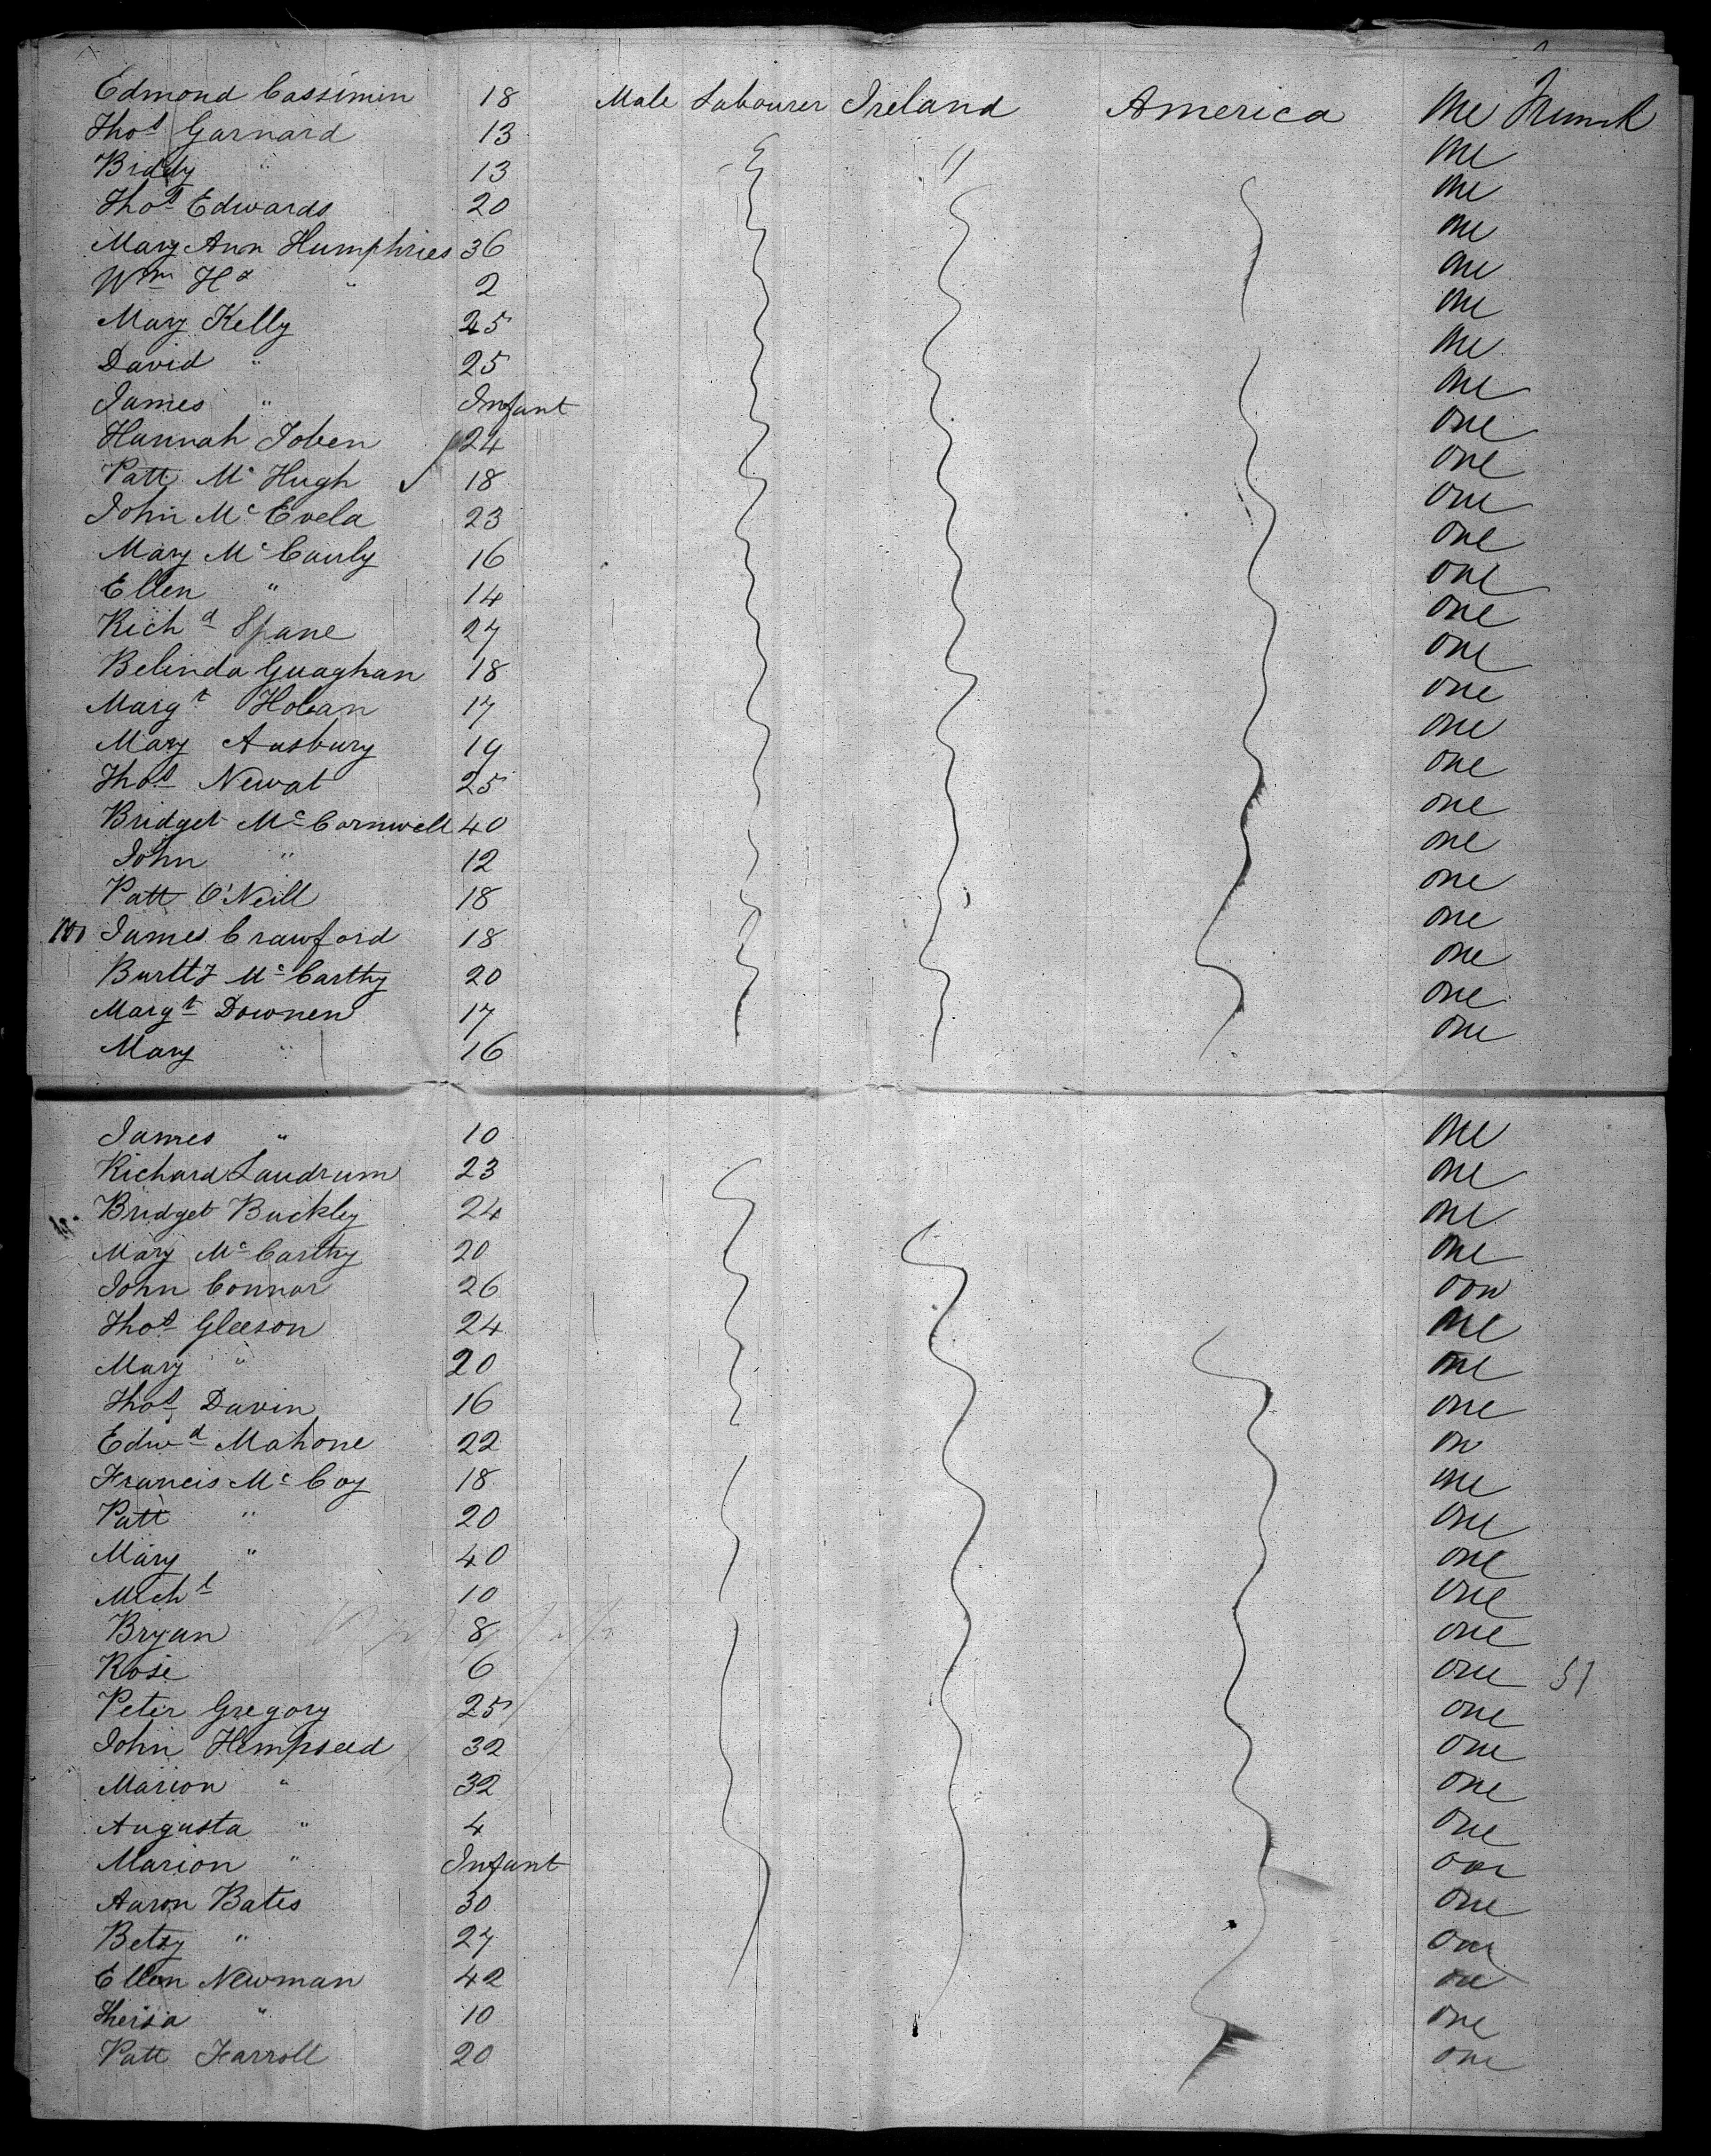 Edmond Cassimin 18 Male Labourer Ireland America One Trunk
Thos Garnard 13 " One
Biddy " 13 One
Thos Edwards 20 One
Mary Ann Humphries 36 One
Wm Hy " 2 One
Mary Kelly 25 One
David " 25 One
James " Infant One
Hannah Joben 24 One
Patt Mc Hugh 18 One
John Mc Evela 23 One
Mary Mc Caurly 16 One
Ellen " 14 One
Richd Spane 27 One
Belinda Guaghan 18 One
Margt Hoban 17 One
Mary Ausbury 19 One
Thos Newat 25 One
Bridget Mc Cornwell 40 One
John " 12 One
Patt O'Neill 18 One
100 James Crawford 18 One
Mc Carthy 20 One
Margt Downen 17 One
Mary " 16 One
James " 10 One
Richard Landrum 23 One
Bridget Buckley 24 One
Mary Mc Carthy 20 One
John Connor 26 One
Thos Gleeson 24 One
Mary " 20 One
Thos Davin 16 One
Edwd Mahone 22 One
Francis Mc Coy 18 One
Patt " 20 One
Mary " 40 One
Michl 10 One
Bryan 8 One
Rose 6 One 51
Peter Gregory 25 One
John Hempseed 32 One
Marion " 32 One
Augusta " 4 One
Marion " Infant One
Aaron Bates 30 One
Betsy " 27 One
Ellen Newman 42 One
Thersa " 10 One
Patt Farroll 20 One